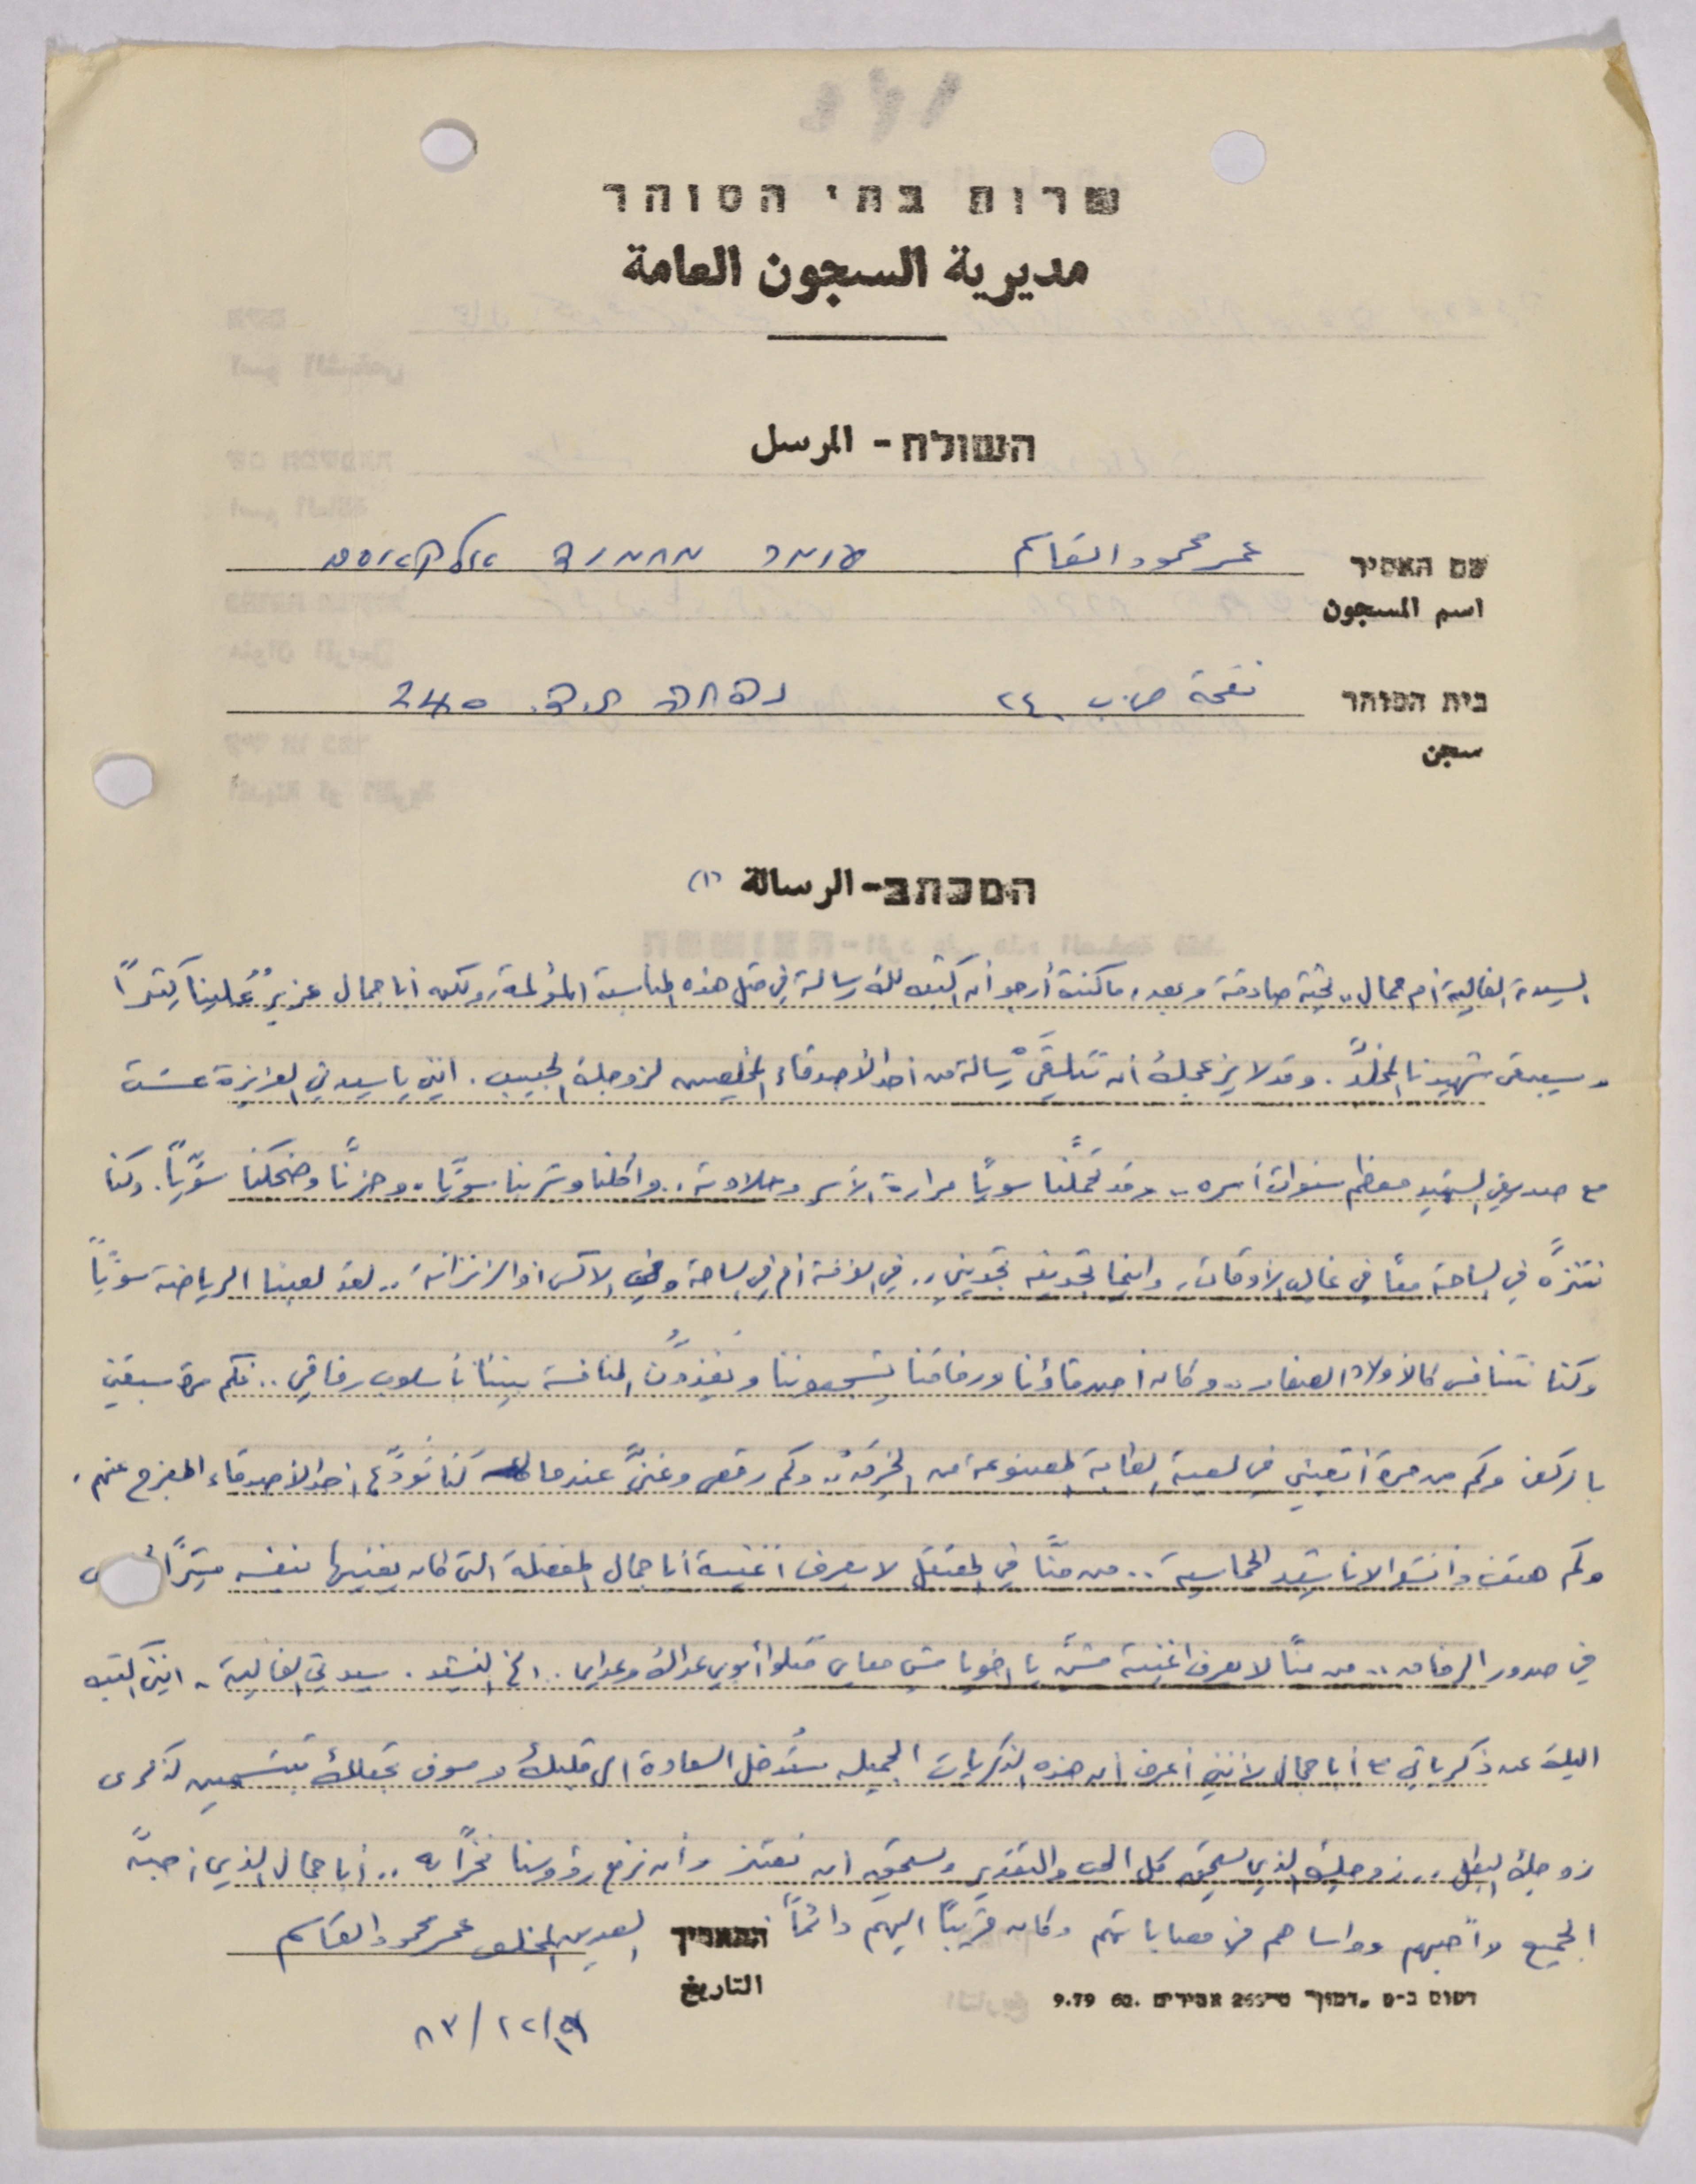 שרות בתי הסוהר
مديرية السجون العامة
השולח - المرسل
שם האסיר عمر محمود القاسم עומר מחמוד אלקאסם
اسم المسجون
בית הסוהר نفحة ص.ب ٢٤٠ נפחה ת.ד. 240
سجن
המכתב - الرسالة (١)
السيدة الغالية أم جمال.. تحية صادقة وبعد، ما كنت أرجو أن اكتب لك رسالة في مثل هذه المناسبة المؤلمة، ولكن أبا جمال عزيزٌ علينا كثيراً
وسيبقى شهيدنا المخلّد. وقد لا يزعجك أن تتلقَّيْ رسالة من أحد الأصدقاء المخلصين لزوجك الحبيب. انني يا سيدتي العزيزة عشت
مع صديقي الشهيد معظم سنوات أسره.. وقد تحمَّلنا سويّاً مرارة الأسر وحلاوته.. واكلنا وشربنا سويّاً. وحزنّا وضحكنا سويّاً. وكنا
نتنزّه في الساحة معاً في غالب الأوقات، واينما تجدينه تجديني.. في الغرفة أم في الساحة وفي الاكس أو الزنزانة.. لقد لعبنا الرياضة سويّاً
وكنا نتنافس كالأولاد الصغار.. وكان أصدقاؤنا ورفاقنا يشجعوننا ويغذّون المنافسة بيننا بأسلوب رفاقي.. فكم مرة سبقني
بالركض وكم من مرة أتعبني في لعبة الطابة المصنوعة من الخِرَق.. وكم رقص وغنّى عندما كنا نودّع أحد الأصدقاء المفرج عنهم.
وكم هتف وانشد الاناشيد الحماسية.. من منّا في المعتقل لا يعرف اغنية أبا جمال المفضلة التي كان يغنيها بنفسه
في صدور الرفاق.. من منّا لا يعرف اغنية مشّي يا اخويا مشي معاي قتلوا أبوي عداك وعداي.. الخ النشيد. سيدتي الغالية. انني اكتب
اليك عن ذكرياتي مع أبا جمال لأنني أعرف أن هذه الذكريات الجميلة ستُدخل السعادة الى قلبك وسوف تجعلك تبتسمين لذكرى
زوجك البطل.. زوجك الذي يستحق كل الحب والتقدير ويستحق ان نعتز وأن نرفع رؤوسنا فخراً به.. أبا جمال الذي أحبّه
الجميع وأحبهم وواساهم في مصاباتهم وكان قريباً اليهم دائماً.
התאריך الصديق المخلص عمر محمود القاسم
التاريخ
דפוס ב-ס .דמוך 9.79 60.
٨٣/١٢/